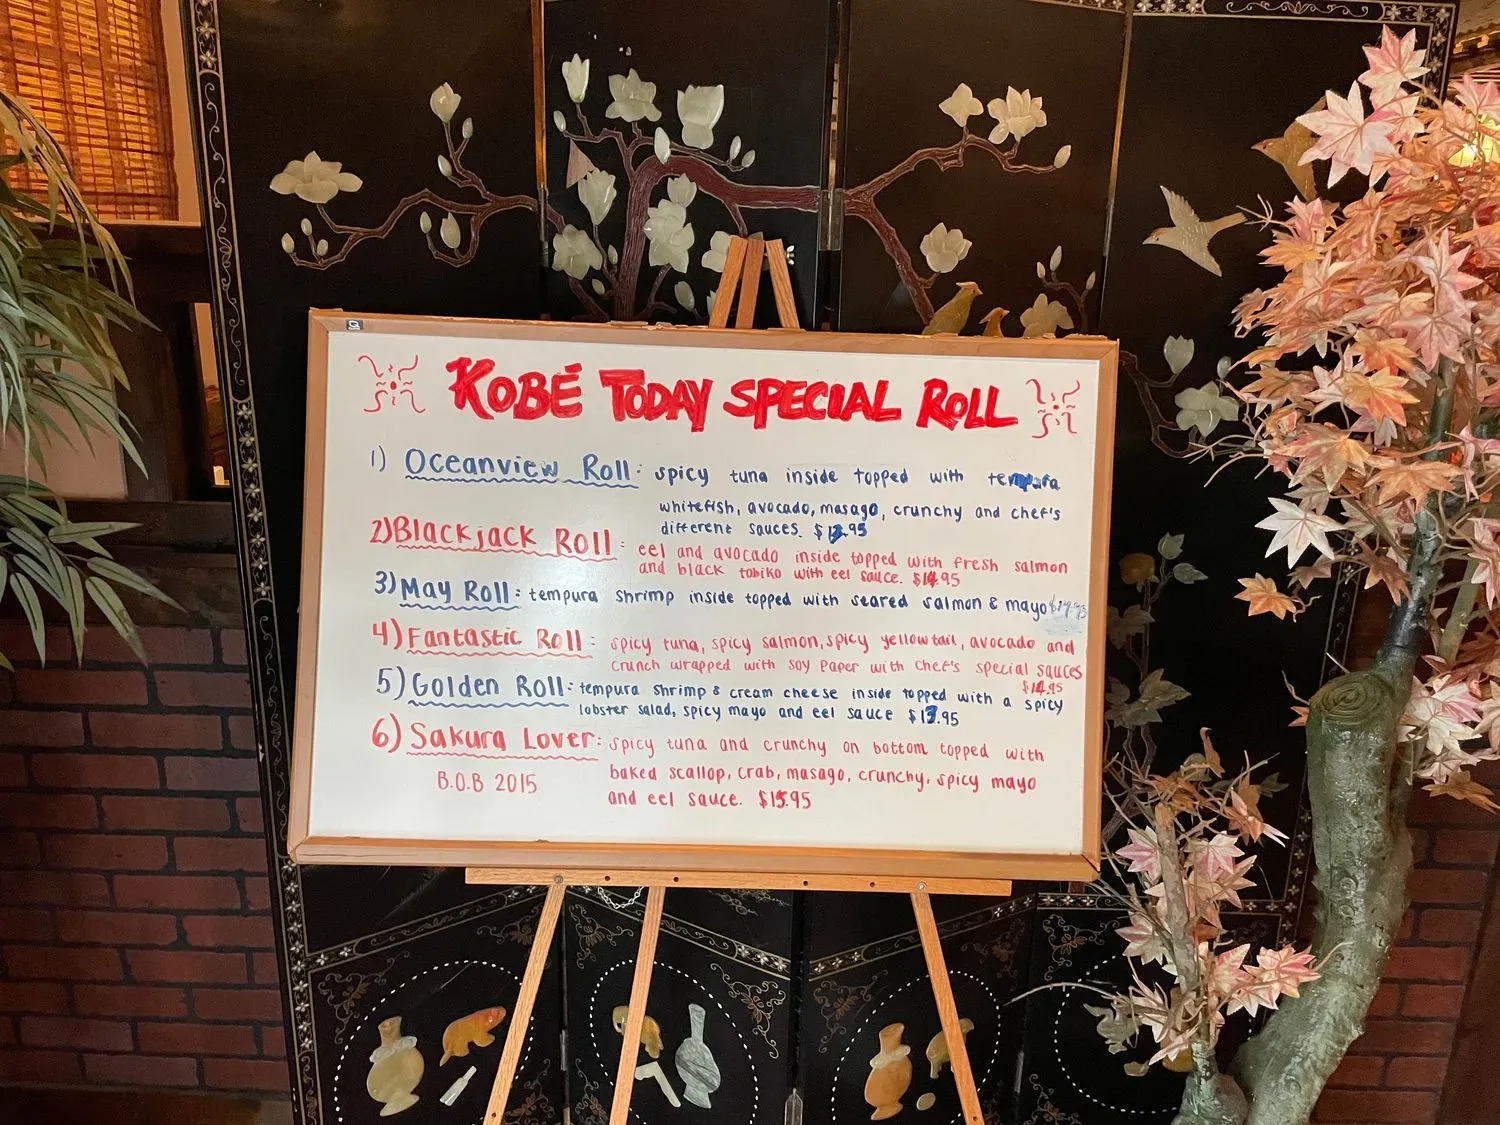 KOBÉ TODAY SPECIAL ROLL
1) Oceanview Roll: spicy tuna inside topped with tempura
whitefish, avocado, masago, crunchy and chef's
different sauces. $13.95
2) Blackjack Roll: eel and avocado inside topped with fresh salmon
and black tobiko with eel sauce. $14.95
3) May Roll: tempura shrimp inside topped with seared salmon & mayo
4) Fantastic Roll: spicy tuna, spicy salmon, spicy yellowtail, avocado and
crunch wrapped with soy paper with chef's special sauces
$14.95
5) Golden Roll: tempura shrimp & cream cheese inside topped with a spicy
lobster salad, spicy mayo and eel sauce $13.95
6) Sakura Lover: spicy tuna and crunchy on bottom topped with
baked scallop, crab, masago, crunchy, spicy mayo
and eel sauce. $15.95
B.O.B 2015